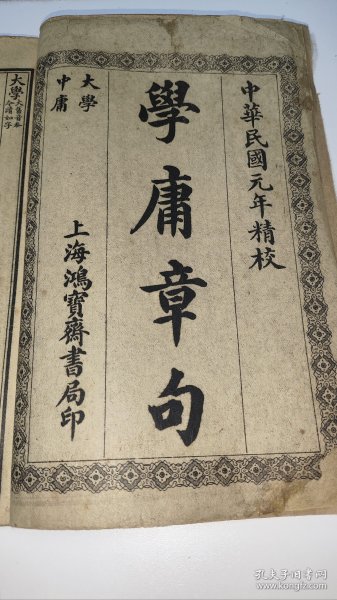 中華民國元年精校
學庸章句
大學
中庸
上海鴻寶齋書局印
大學
大舊音泰
今讀如字
孔夫子旧书网